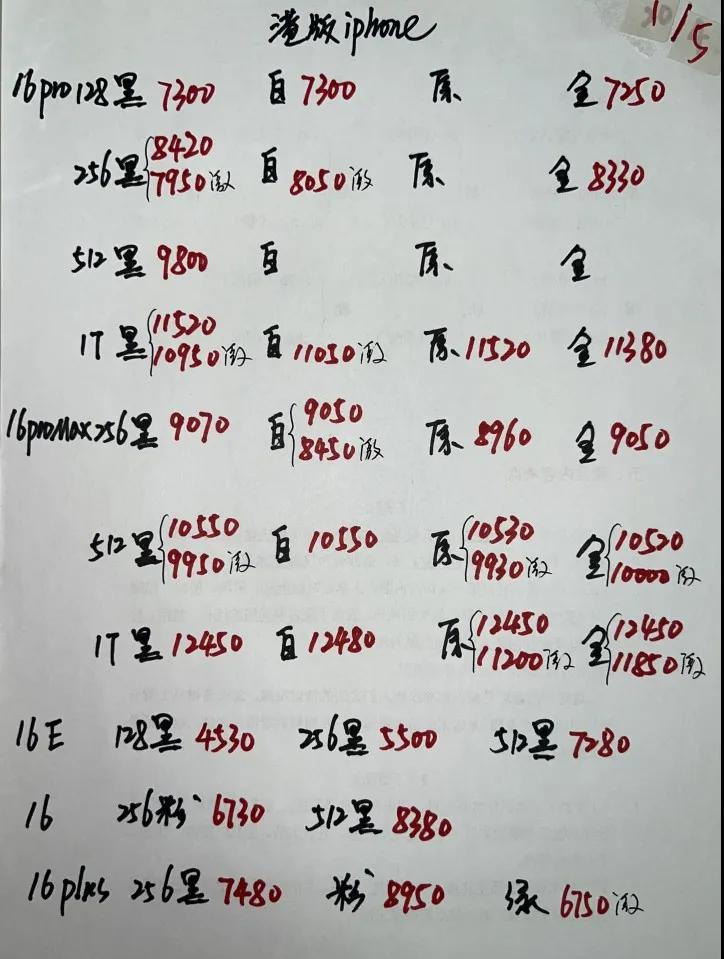 港版iphone
1/5
16pro128黑 7300 白 7300 原 金 7250
256黑 8420 7950激 白 8050激 原 金 8330
512黑 9800 白 原 金
1T 黑 11520 10950激 白 11050激 原 11520 金 11380
16proMax256黑 9070 白 9050 8450激 原 8960 金 9050
512黑 10550 9950激 白 10550 原 10530 9930激 金 10520 10000激
1T 黑 12450 白 12480 原 12450 11200激 金 12450 11850激
16E 128黑 4530 256黑 5500 512黑 7280
16 256粉 6730 512黑 8380
16plus 256黑 7480 粉 8950 绿 6750激